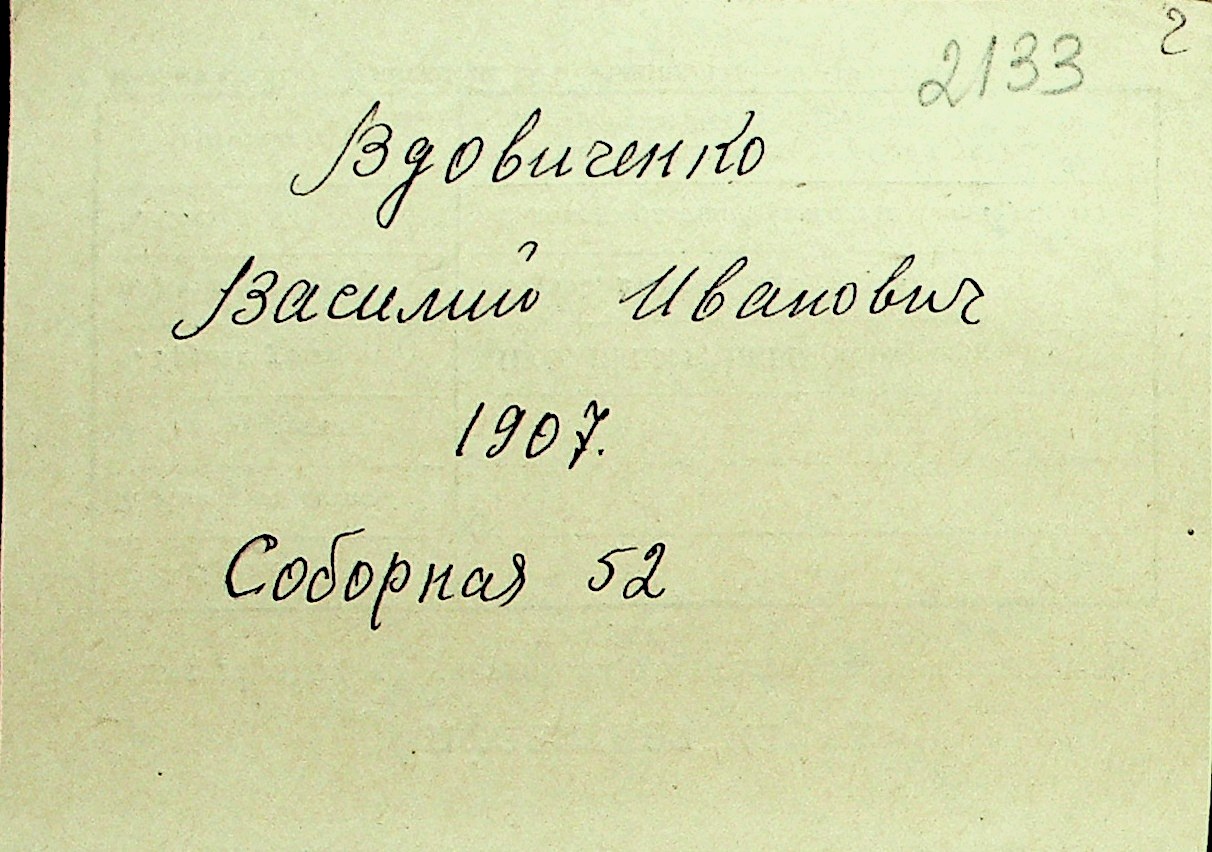 2133 2
Вдовиченко
Василий Иванович
1907.
Соборная 52